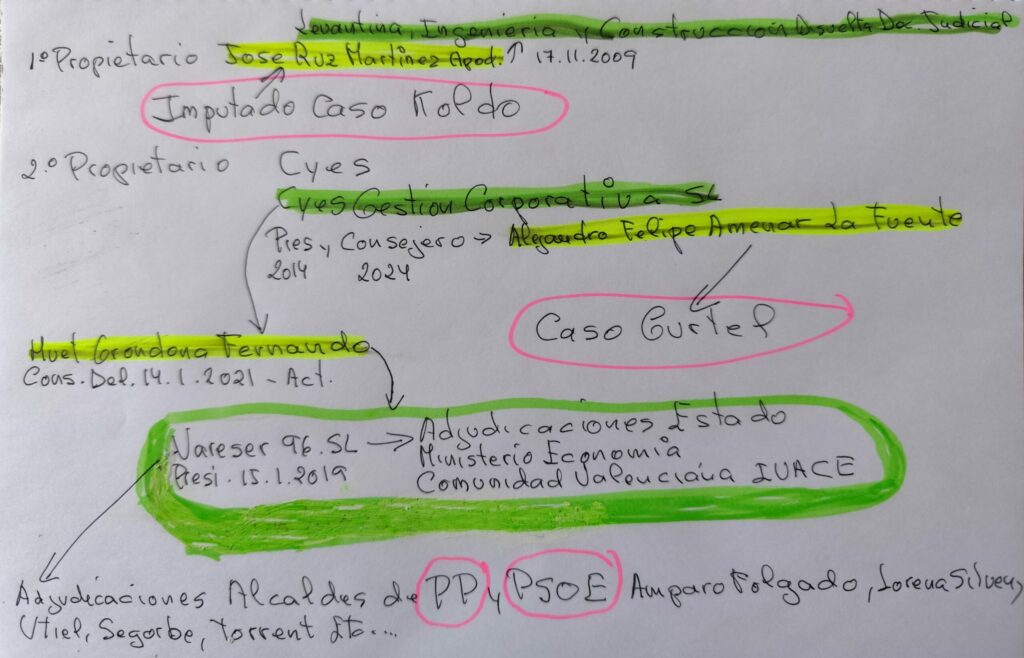 Levantina, Ingenieria y Construccion Disuelta Doc. Judicial
1º Propietario Jose Ruz Martinez Apod. ↑ 17.11.2009
Imputado Caso Koldo
2.º Propietario Cyes
Cyes Gestion Corporativa SL
Pres y Consejero → Alejandro Felipe Amenar La Fuente
2014 2024
Caso Gurtel
Huet Grondona Fernando
Cons. Del. 14.1.2021 - Act.
Vareser 96. SL → Adjudicaciones Estado
Ministerio Economia
Presi. 15.1.2019 Comunidad Valenciana IVACE
Adjudicaciones Alcaldes de PP y PSOE Amparo Folgado, Lorena
Utiel, Segorbe, Torrent Etc....